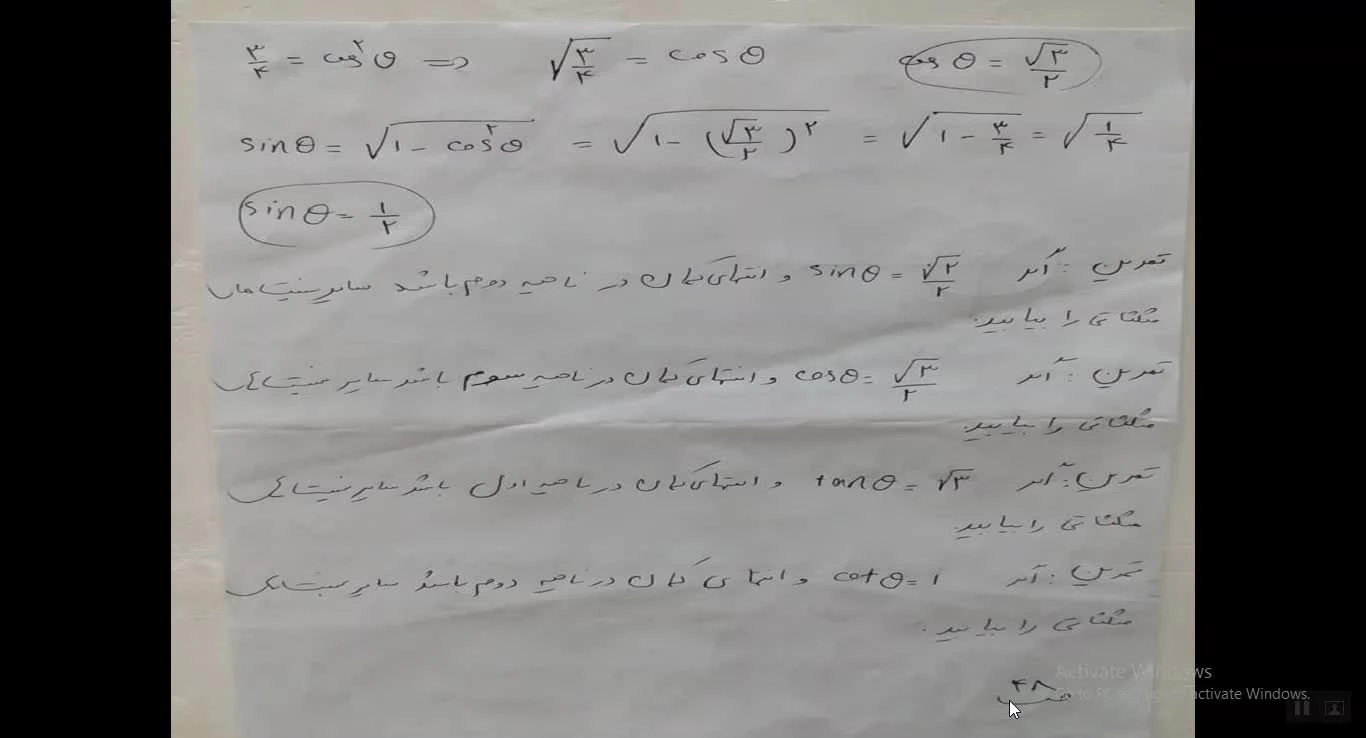 ۳/۴ = cos²θ ⇒ √(۳/۴) = cosθ cosθ = √۳/۲
sinθ = √(۱ - cos²θ) = √(۱ - (√۳/۲)^۲) = √(۱ - ۳/۴) = √(۱/۴)
sinθ = ۱/۲
تمرین : اگر sinθ = √۲/۲ و انتهای کمان در ناحیه دوم باشد سایر نسبت های
مثلثاتی را بیابید.
تمرین : اگر cosθ = √۳/۲ و انتهای کمان در ناحیه سوم باشد سایر نسبت های
مثلثاتی را بیابید.
تمرین : اگر tanθ = √۳ و انتهای کمان در ناحیه اول باشد سایر نسبت های
مثلثاتی را بیابید.
تمرین : اگر cotθ = ۱ و انتهای کمان در ناحیه دوم باشد سایر نسبت های
مثلثاتی را بیابید.
Activate Windows
۴۸
Go to PC settings to activate Windows.